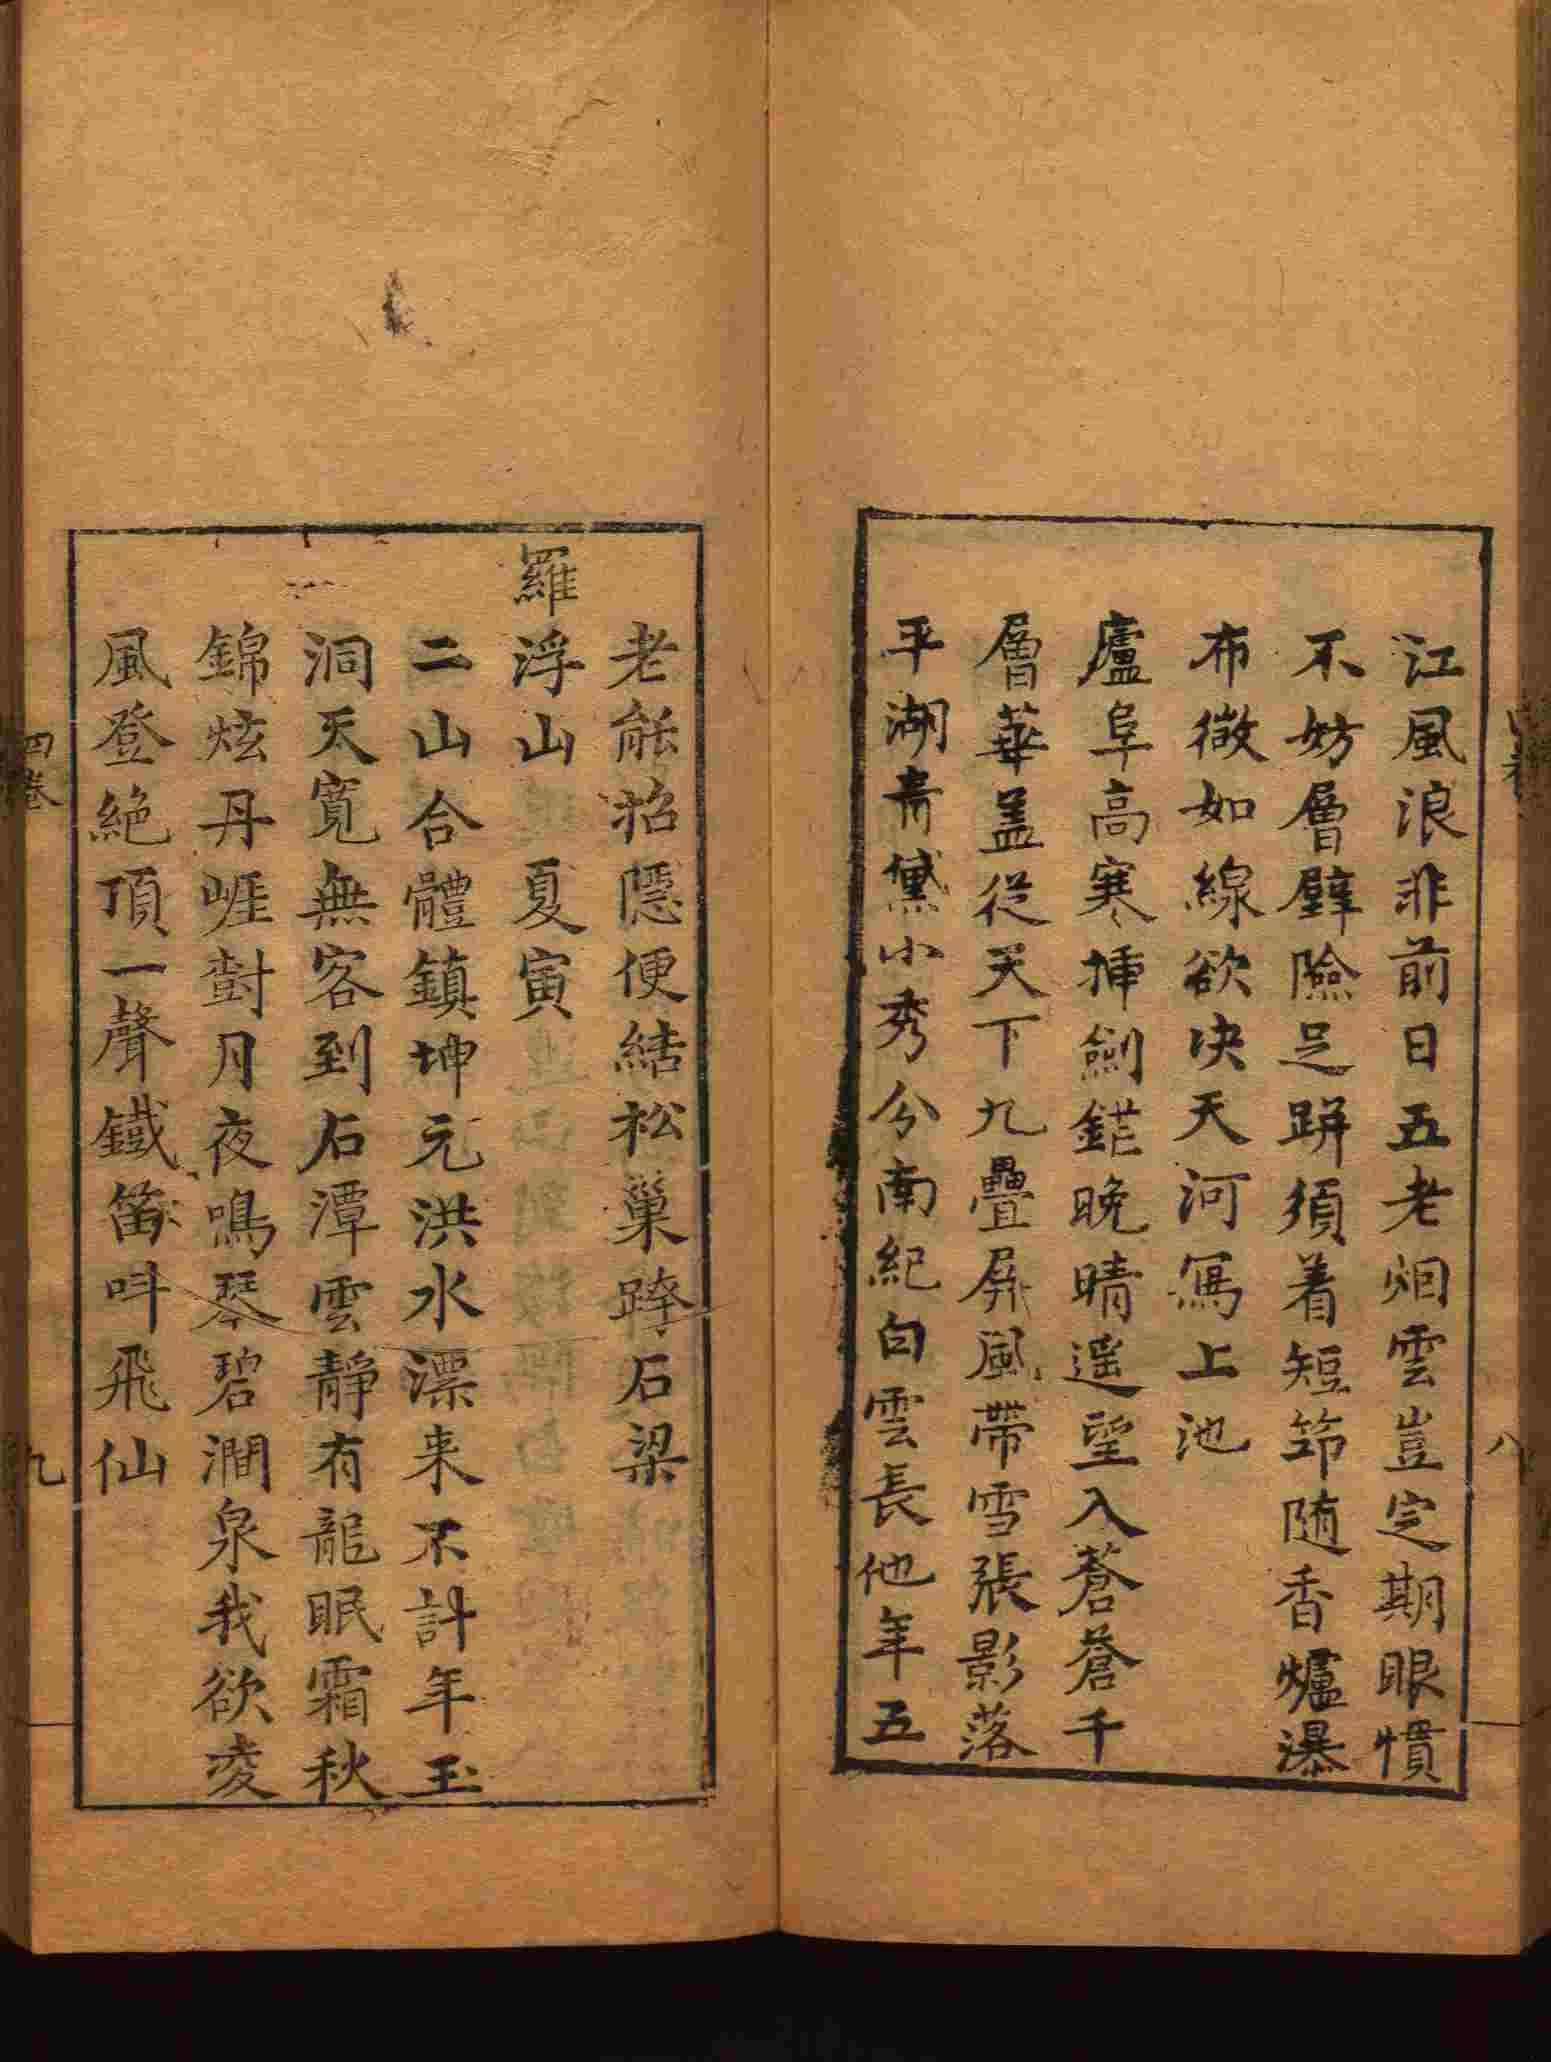 江風浪非前日五老烟雲豈定期眼慣
不妨層壁險足跰須着短笻随香爐瀑
布微如線欲决天河寫上池
廬阜高寒揷劍鋩晚晴遥望入蒼蒼千
層華盖從天下九疊屏風帶雪張影落
平湖青黛小秀分南紀白雲長他年五
八
老能招隱便結松巢跨石梁
羅浮山　夏寅
二山合體鎮坤元洪水漂来不計年玉
洞天寬無客到石潭雲靜有龍眠霜秋
錦炫丹崕對月夜鳴琴碧澗泉我欲凌
風登絶頂一聲鐵笛呌飛仙
四卷
九